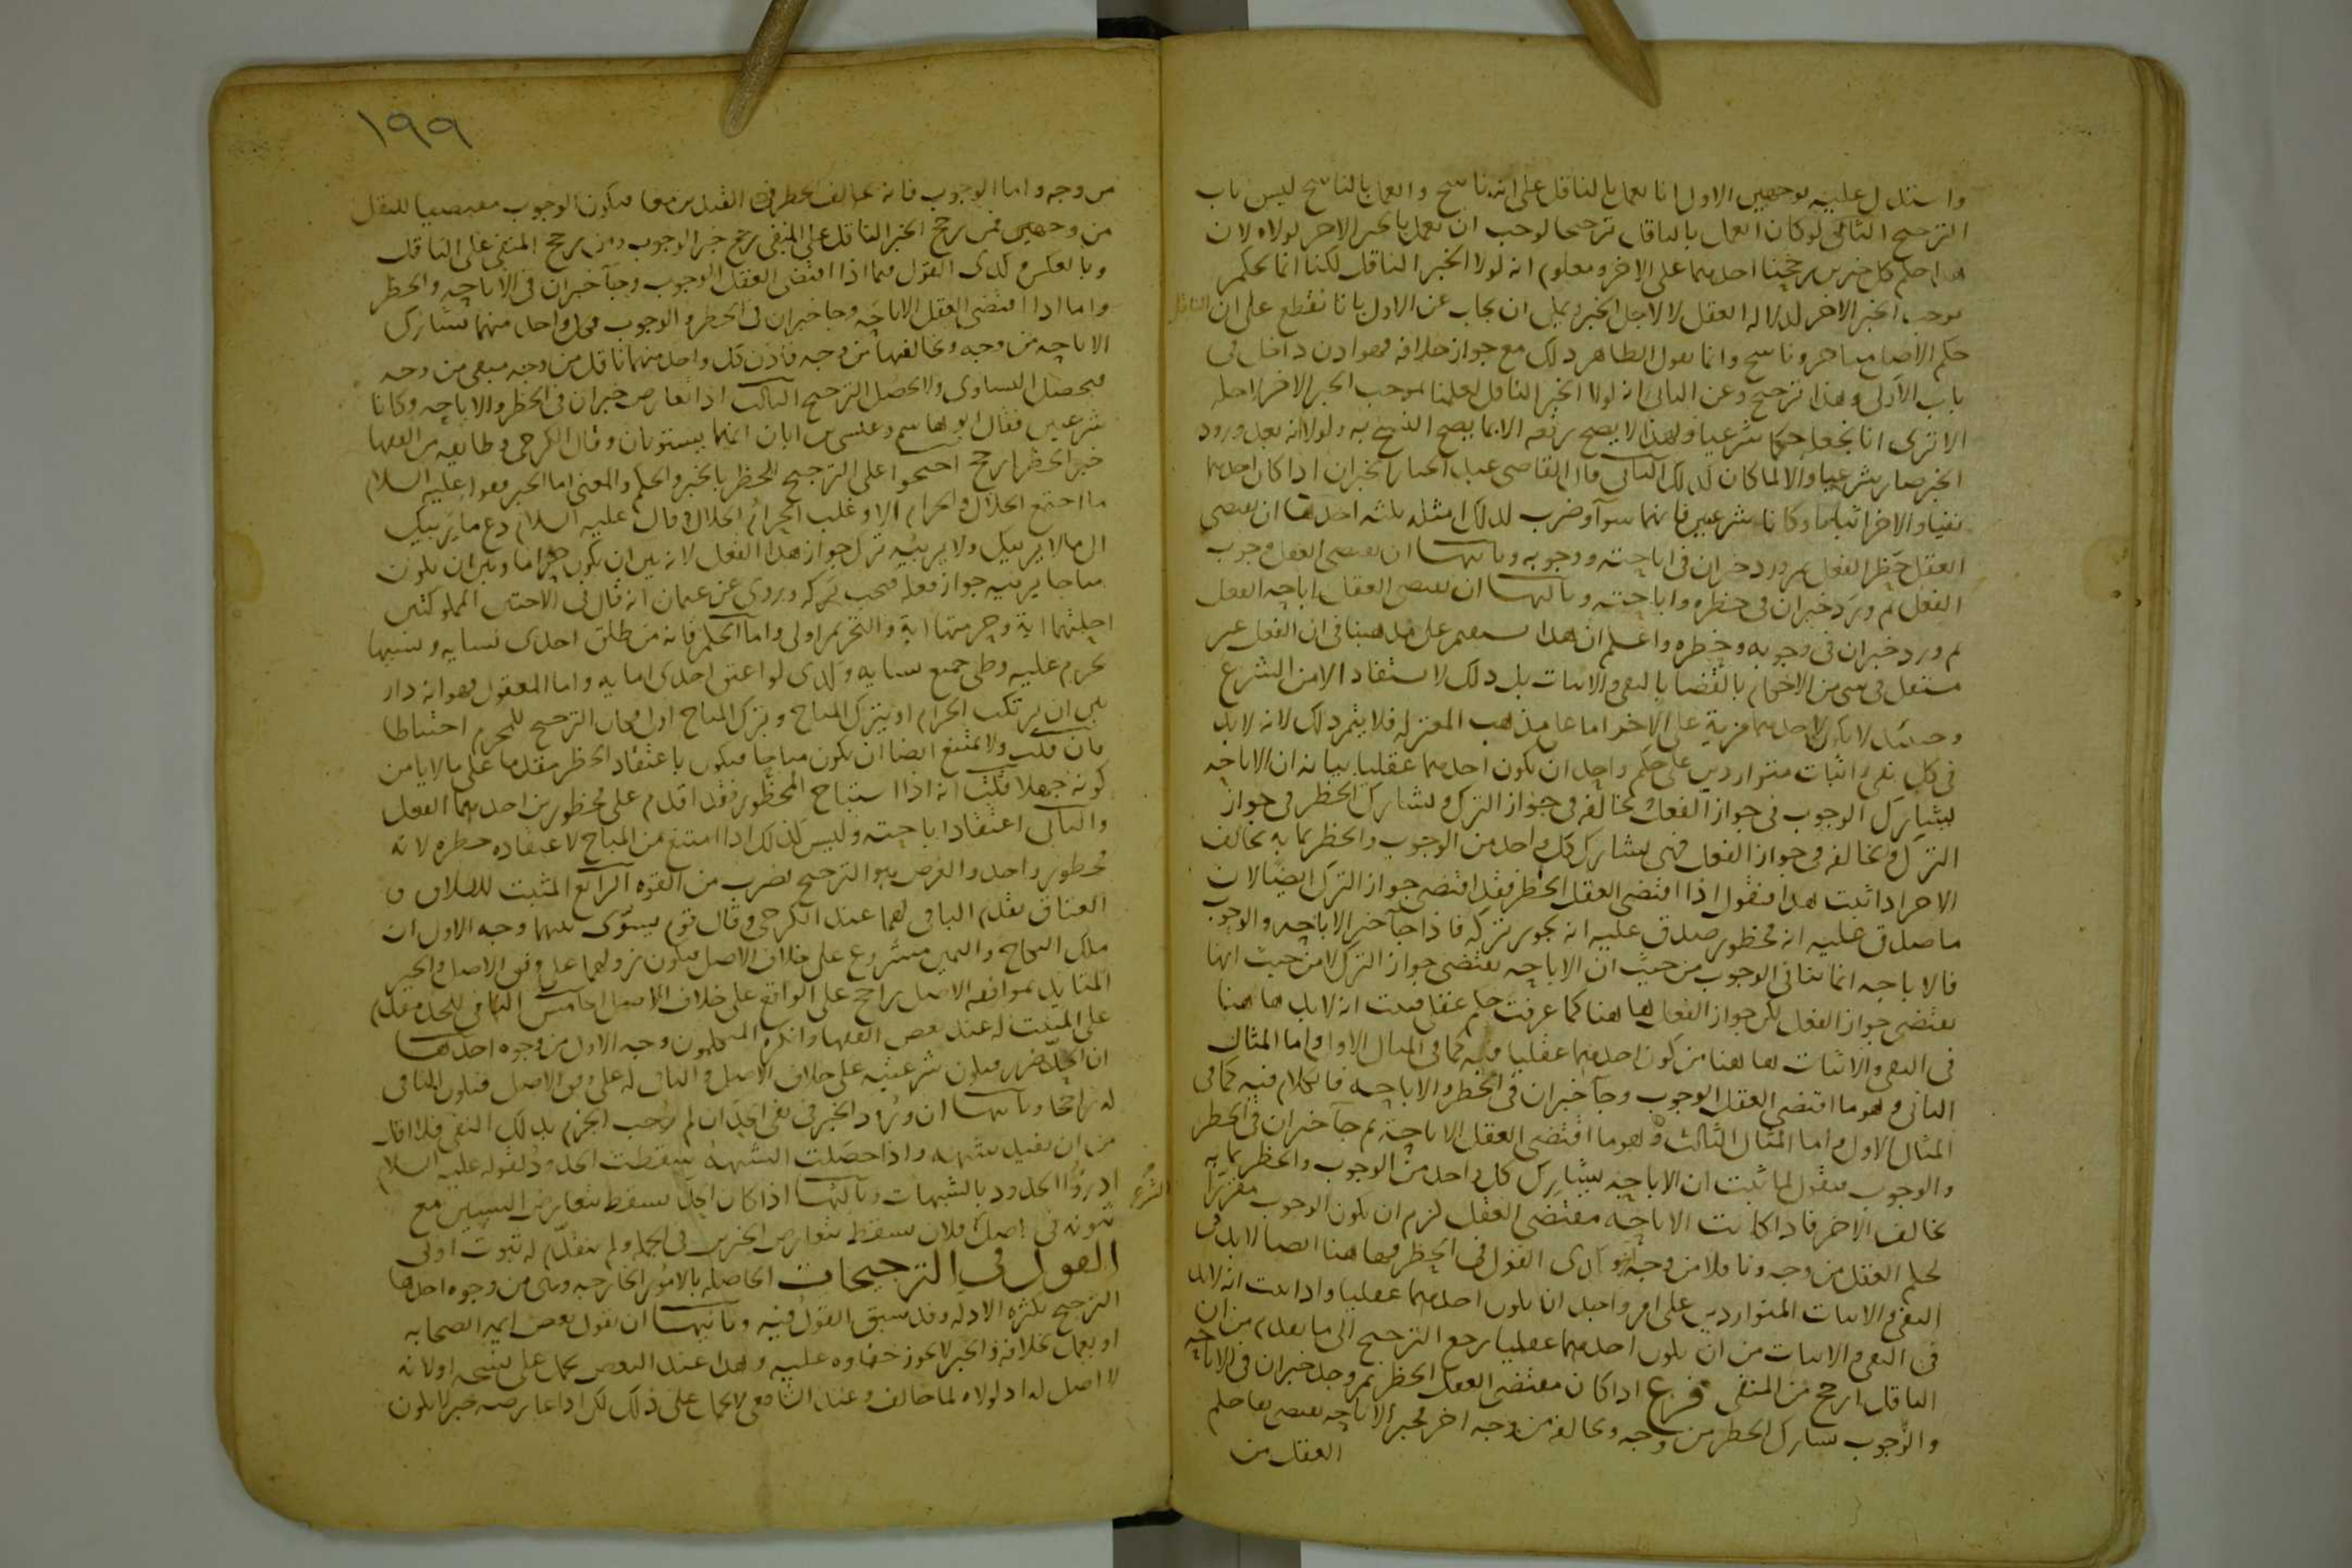 واستدل عليه بوجهين الاول انا نعمل بالناقل على انه ناسخ والعمل بالناسخ ليس باب
الترجيح الثانى لو كان العمل بالناقل ترجيحا لوجب ان نعمل بالخبر الاخر لولاه لان
هذا حكم كل خبرين رجحنا احدهما على الاخر ومعلوم انه لولا الخبر الناقل لكنا انما نحكم
بموجب الخبر الاخر لدلالة العقل لا لاجل الخبر ويمكن ان يجاب عن الاول بانا نقطع على ان الناقل
حكم الاصل متاخر وناسخ وانما نقول الظاهر ذلك مع جواز خلافه فهو اذن داخل فى
باب الاولى وهذا ترجيح وعن الثانى انه لولا الخبر الناقل لعلمنا بموجب الخبر الاخر لاجله
الا ترى انا نجعله حكما شرعيا ولهذا لا يصح رفعه الا بما يصح النسخ به ولولا انه بعد ورود
الخبر صار شرعيا والا لما كان كذلك الثانى قال القاضى عبد الجبار الخبران اذا كان احدهما
نفيا والاخر اثباتا وكانا شرعيين فانهما سوآ وضرب لذلك امثله ثلثه احدها ان يقتضى
العقل حظر الفعل ثم ورد خبران فى اباحته ووجوبه وثانيها ان يقتضى العقل وجوب
الفعل ثم ورد خبران فى حظره واباحته وثالثها ان يقتضى العقل اباحه الفعل
ثم ورد خبران فى وجوبه وحظره واعلم ان هذا يستقيم على مذهبنا فى ان العقل غير
مستقل فى شى من الاحكام بالقضا بالنفى والاثبات بل ذلك لا يستفاد الا من الشرع
وحينئذ لا يكون لاحدهما مزية على الاخر اما على مذهب المعتزله فلا يتم ذلك لانه لا بد
فى كل نفى واثبات متواردين على حكم واحد ان يكون احدهما عقليا بيانه ان الاباحه
يشارك الوجوب فى جواز الفعل ويخالفه فى جواز الترك ويشارك الحظر فى جواز
الترك ويخالفه فى جواز الفعل فهى يشارك كل واحد من الوجوب والحظر بما به يخالف
الاخر اذا ثبت هذا فنقول اذا اقتضى العقل الحظر فقد اقتضى جواز الترك ايضا لان
ما صدق عليه انه محظور صدق عليه انه يجوز تركه فاذا جآ خبر الاباحه والوجوب
فالاباحه انما تنافى الوجوب من حيث ان الاباحه تقتضى جواز الترك لا من حيث انها
تقتضى جواز الفعل لكن جواز الفعل هاهنا كما عرفت حكم عقلى فثبت انه لا بد هاهنا
فى النفى والاثبات هاهنا من كون احدهما عقليا فيه كما فى المثال الاول واما المثال
الثانى وهو ما اقتضى العقل الوجوب وجآ خبران فى الحظر والاباحه فالكلام فيه كما فى
المثال الاول واما المثال الثالث وهو ما اقتضى العقل الاباحة ثم جآ خبران فى الحظر
والوجوب فنقول لما ثبت ان الاباحه يشارك كل واحد من الوجوب والحظر بما به
يخالف الاخر فاذا كانت الاباحه مقتضى العقل لزم ان يكون الوجوب مقررا
لحكم العقل من وجه وناقلا من وجه وكذى القول فى الحظر فهاهنا ايضا لا بد فى
النفى والاثبات المتواردين على امر واحد ان يكون احدهما عقليا واذا ثبت انه لا بد
فى النفى والاثبات من ان يكون احدهما عقليا رجع الترجيح الى ما تقدم من ان
الناقل ارجح من المبقى فرع اذا كان مقتضى العقل الحظر ثم وجد خبران فى الاباحه
والوجوب تشارك الحظر من وجه وتخالفه من وجه اخر فخبر الاباحه يقتضى بقا حكم
العقل من
١٩٩
من وجه واما الوجوب فانه يخالف الحظر فى القيدين معا فيكون الوجوب مقتضيا للنقل
من وجهين فمن رجح الخبر الناقل على المبقى رجح خبر الوجوب ومن رجح المبقى على الناقل
وبالعكس وكذى القول فيما اذا اقتضى العقل الوجوب وجآ خبران فى الاباحه والحظر
واما اذا اقتضى العقل الاباحه وجا خبران فى الحظر والوجوب فكل واحد منهما تشارك
الاباحه من وجه ويخالفها من وجه فاذن كل واحد منهما ناقل من وجه مبقى من وجه
فيحصل التساوى ولا يحصل الترجيح الثالث اذا تعارض خبران فى الحظر والاباحه وكانا
شرعيين فقال ابو هاشم وعيسى بن ابان انهما يستويان وقال الكرخى وطايفه من الفقها
خبر الحظر ارجح احتجوا على الترجيح للحظر بالخبر والحكم والمعنى اما الخبر فقوله عليه السلام
ما اجتمع الحلال والحرام الا وغلب الحرام الحلال وقال عليه السلام دع ما يريبك
الى ما لا يريبك ولا يريبه ترك جواز هذا الفعل لانه بين ان يكون حراما وبين ان يكون
مباحا يريبه جواز فعله فيجب تركه وروى عن عثمان انه قال فى الاختين المملوكتين
احلتهما اية وحرمتهما اية والتحريم اولى واما الحكم فانه من طلق احدى نسايه ونسيها
يحرم عليه وطى جميع نسايه وكذى لو اعتق احدى امايه واما المعقول فهو انه دار
بين ان يرتكب الحرام او يترك المباح وترك المباح اولى فكان الترجيح للمحرم احتياطا
فان قلت ولا يمتنع ايضا ان يكون مباحا فيكون باعتقاد الحظر مقدما على ما لا يامن
كونه جهلا قلت انه اذا استباح المحظور فقد اقدم على محظورين احدهما الفعل
والثانى اعتقاد اباحته وليس كذلك اذا امتنع من المباح لاعتقاده حظره لانه
محظور واحد والغرض هو الترجيح بضرب من القوه الرابع المثبت للطلاق و
العتاق تقدم النافى لهما عند الكرخى وقال قوم يسوى بينهما وجه الاول ان
ملك النكاح واليمين مشروع على خلاف الاصل فيكون زوالهما على وفق الاصل والخبر
المتايد بموافقه الاصل راجح على الواقع على خلاف الاصل الخامس النافى للحد مقدم
على المثبت له عند بعض الفقها وانكره المتكلمون وجه الاول من وجوه احدها
ان الحد ضرر فيكون شرعيته على خلاف الاصل والنافى له على وفق الاصل فيكون النافى
له راجحا وثانيها ان ورود الخبر فى نفى الحد ان لم يوجب الجزم بذلك النفى فلا اقل
من ان يفيد شبهه واذا حصلت الشبهه سقطت الحدود لقوله عليه السلام
ادرؤا الحدود بالشبهات وثالثها اذا كان الحد يسقط بتعارض البينتين مع
ثبوته فى اصل الشرع فلان يسقط بتعارض الخبرين فى الجمله ولم يتقدم له ثبوت اولى
القول فى الترجيحات الحاصله بالامور الخارجيه وهى من وجوه احدها
الترجيح بكثره الادله وقد سبق القول فيه وثانيها ان يقول بعض ايمه الصحابه
او يعمل بخلافه والخبر لا يجوز خفاوه عليه وهذا عند البعض يحمل على نسخه او لانه
لا اصل له اذ لولاه لما خالف وعند الشافعى لا يحمل على ذلك لكن اذا عارضه خبر لا يكون